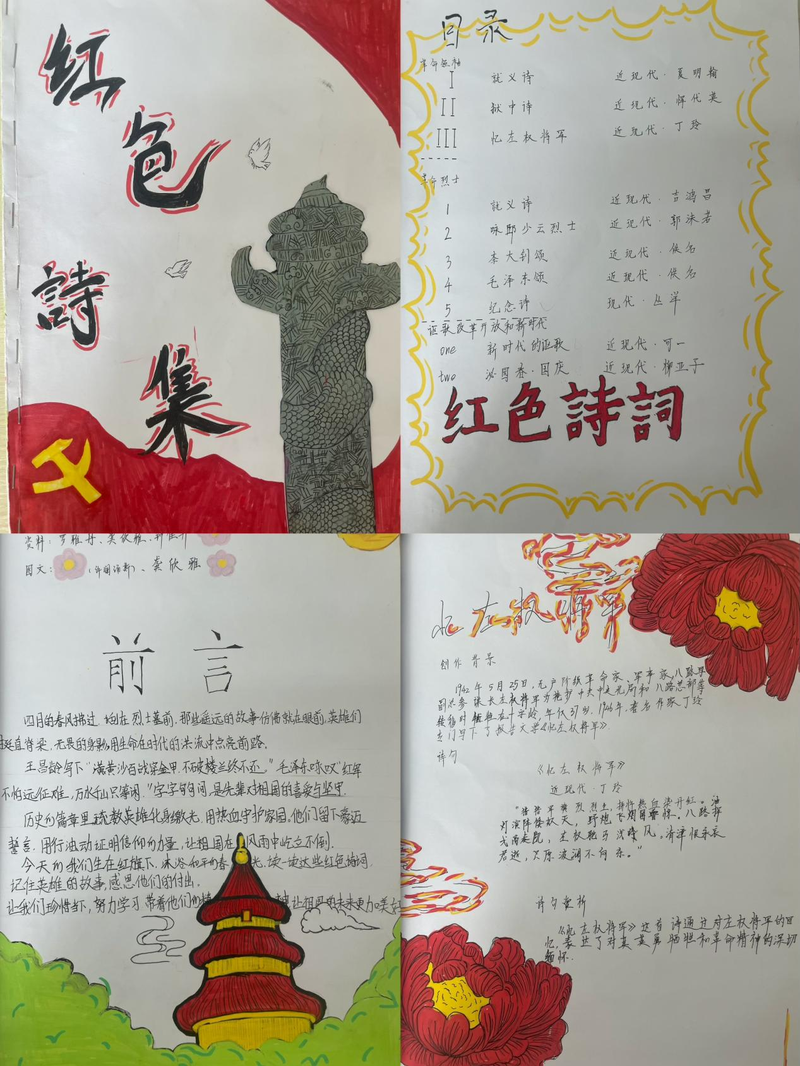 红色
詩集
目录
I 就义诗 近现代·夏明翰
II 狱中诗 近现代·恽代英
III 忆左权将军 近现代·丁玲
革命烈士
1 就义诗 近现代·吉鸿昌
2 咏邱少云烈士 近现代·郭沫若
3 李大钊颂 近现代·佚名
4 毛泽东颂 近现代·佚名
5 纪念诗 现代·丛洋
讴歌改革开放和新时代
one 新时代的讴歌 近现代·可一
two 浣溪春·国庆 近现代·柳亚子
红色詩詞
图文: 龚欣雅
前言
四月的春风拂过,站在烈士墓前,那些遥远的故事仿佛就在眼前,英雄们
挺直脊梁,无畏的身躯,用生命在时代的洪流中点亮前路。
王昌龄写下"黄沙百战穿金甲,不破楼兰终不还。"毛泽东咏叹"红军
不怕远征难,万水千山只等闲。"字字句句间,是先辈对祖国的喜爱与坚毅
历史的篇章里,无数英雄化身微光,用热血守护家园,他们留下誓
言,用行动证明信仰的力量,让祖国在风雨中屹立不倒。
今天的我们生在红旗下,沐浴和平的春光,读一读这些红色诗词,
记住英雄的故事,感恩他们的付出。
让我们珍惜当下,努力学习,带着他们的 让祖国的未来更加
忆左权将军
创作背景
1942年5月25日,无产阶级革命家、军事家、八路军
副总参谋长左权将军为掩护中共中央北方局和八路总部等
转移时牺牲在十字岭,年仅37岁,
专门写下了 《忆左权将军》
诗句
《忆左权将军》
近现代·丁玲
诗句赏析
《忆左权将军》这首诗通过对左权将军的回
忆,表达了对其英勇牺牲和革命精神的深切
缅怀